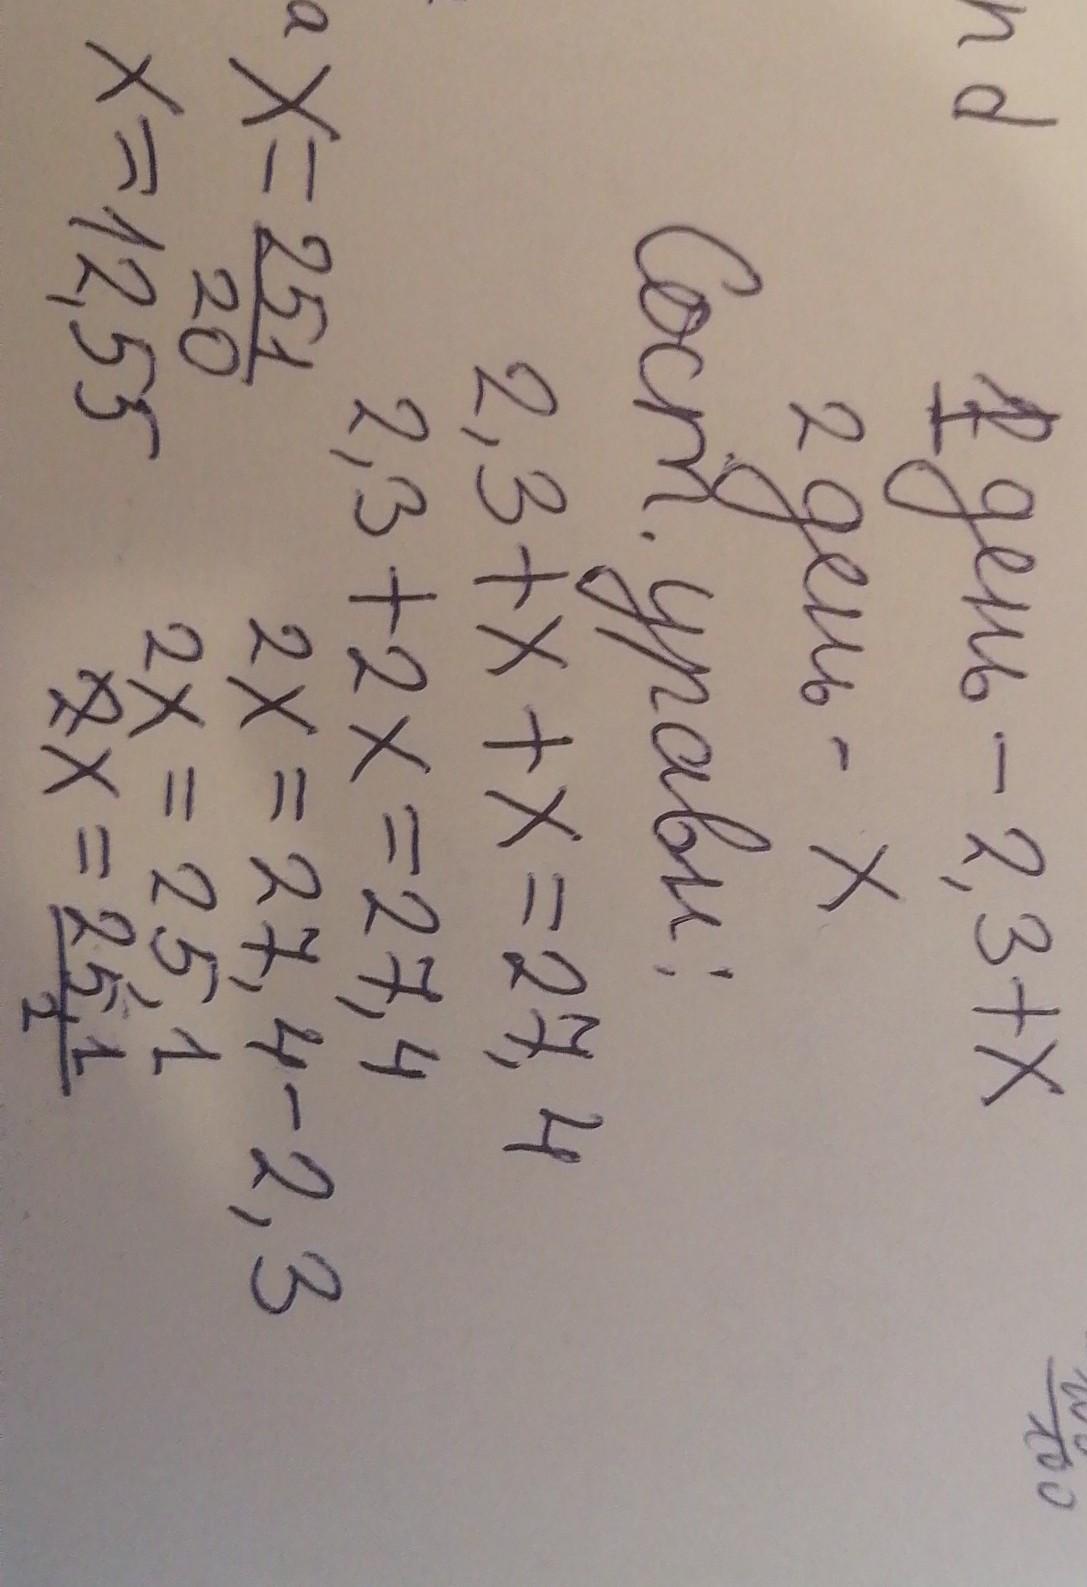 1 день - 2,3+x
2 день - x
Сост. уравн:
2,3+x+x=27,4
2,3+2x=27,4
2x=27,4-2,3
2x=25,1
2x=25,1/2
x=251/20
x=12,55